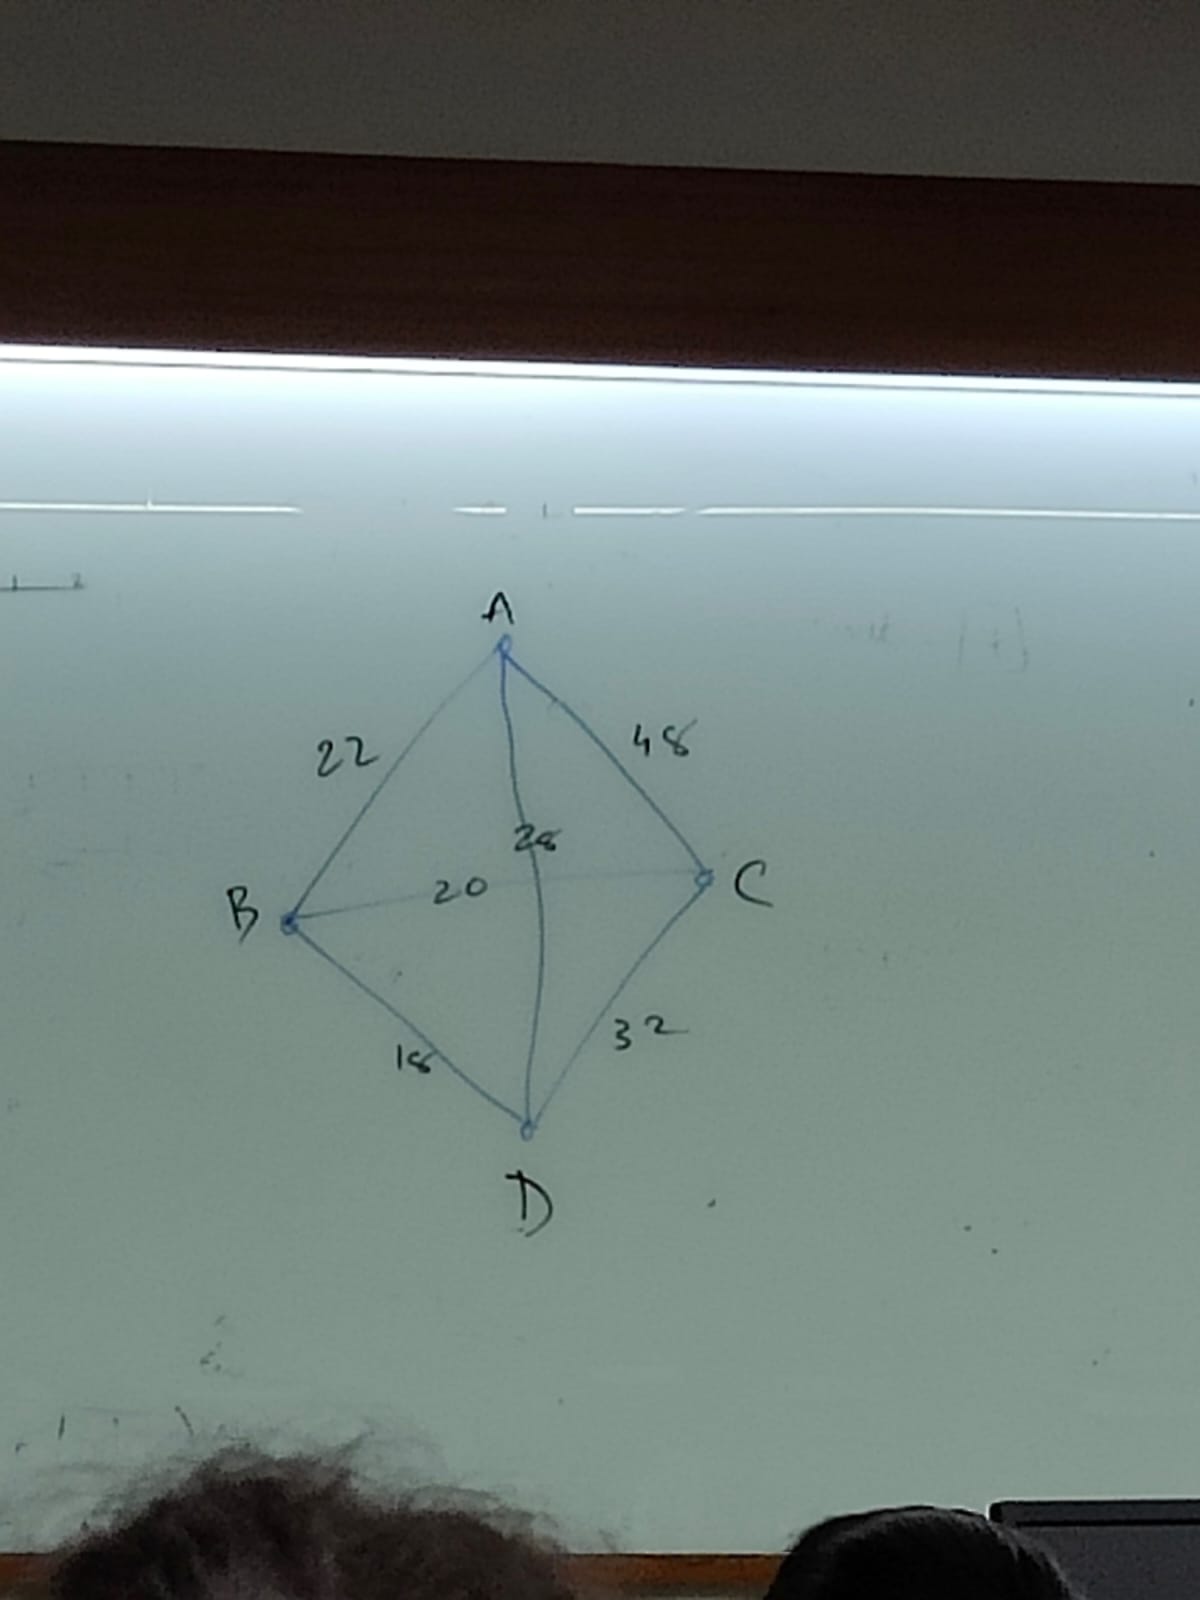 A
22
48
28
B
20
C
18
32
D